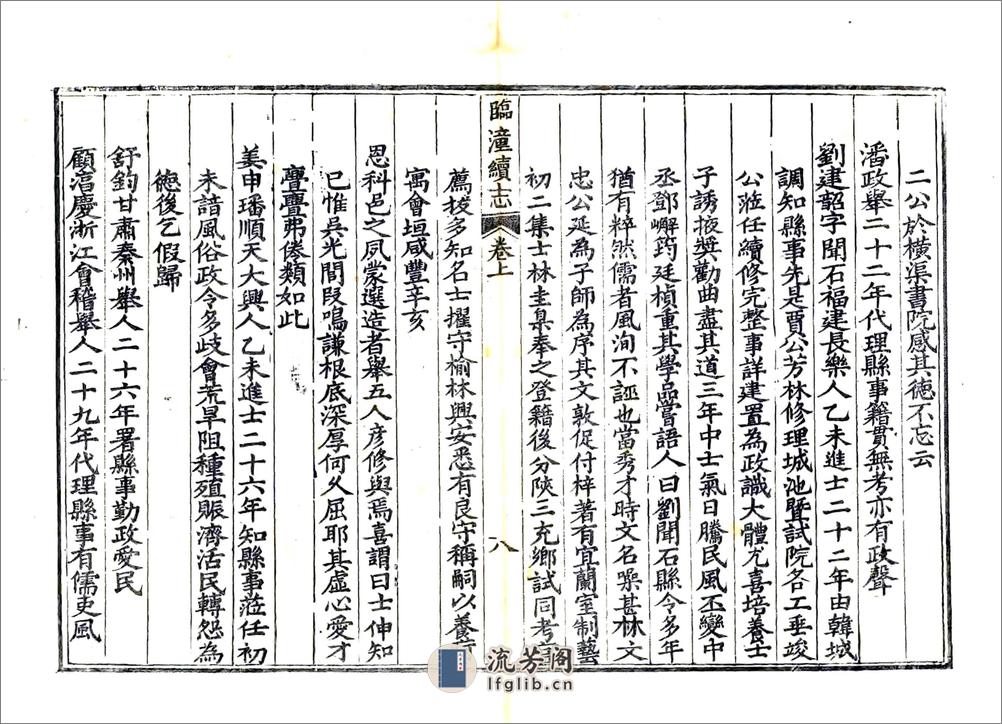 二公於橫渠書院感其德不忘云
潘政舉二十二年代理縣事籍貫無考亦有政聲
劉建韶字聞石福建長樂人乙未進士二十二年由韓城
調知縣事先是賈公芳林修理城池暨試院各工垂竣
公蒞任續修完整事詳建置為政識大體尤喜培養士
子誘掖奬勸曲盡其道三年中士氣日騰民風丕變中
丞鄧嶰筠廷楨重其學品嘗語人曰劉聞石縣令多年
猶有粹然儒者風洵不誣也當秀才時文名噪甚林文
忠公延為子師為序其文敦促付梓著有宜蘭室制藝
初二集士林圭臬奉之登籍後分陝三充鄉試同考官
臨潼續志
卷上
八
薦拔多知名士擢守榆林興安悉有良守稱嗣以養疴
寓會垣咸豐辛亥
恩科邑之夙蒙選造者舉五人彦修與焉喜謂曰士伸知
已惟吳光閭段鳴謙根底深厚何久屈耶其虛心愛才
亹亹弗倦類如此
姜申璠順天大興人乙未進士二十六年知縣事蒞任初
未諳風俗政令多歧會荒旱阻種殖賑濟活民轉怨為
德後乞假歸
舒鈞甘肅秦州舉人二十六年署縣事勤政愛民
顧滔慶浙江會稽舉人二十九年代理縣事有儒吏風
流芳阁
lfglib.cn